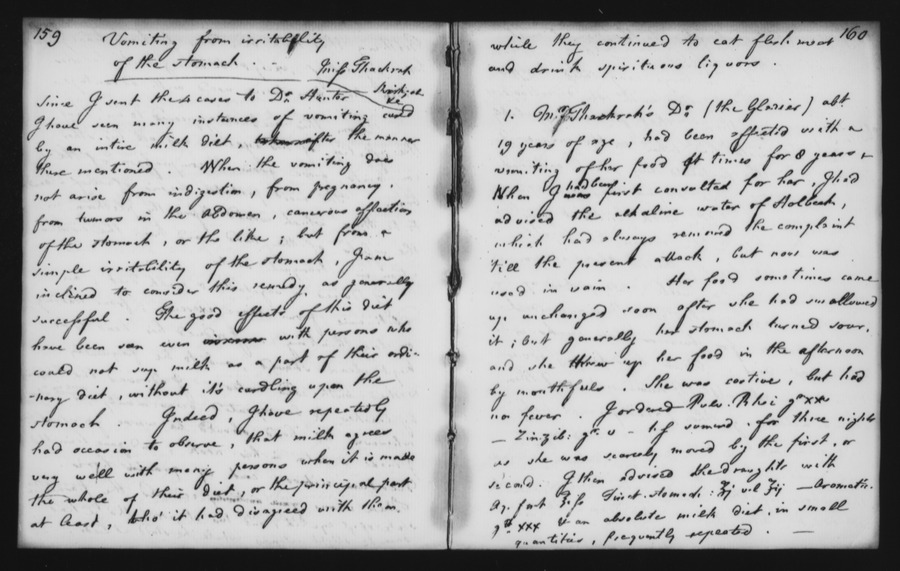 159
Vomiting from irritability
of the stomach. --
Miss Thackrah
Since I sent these cases to Dr. Hunter
I have seen many instances of vomiting cured
by an intire milk diet, after the manner
there mentioned. When the vomiting does
not arise from indigestion, from pregnancy,
from tumors in the abdomen, cancerous affection
of the stomach, or the like; but from a
simple irritability of the stomach, I am
inclined to consider this remedy as generally
successful. The good effects of this diet
have been seen even with persons who
could not sup milk as a part of their ordi-
-nary diet, without it's curdling upon the
stomach. Indeed, I have repeatedly
had occasion to observe, that milk agrees
very well with many persons when it is made
the whole of their diet, or the principal part
at least, tho' it had disagreed with them
160
while they continued to eat flesh meat
and drink spirituous liquors.
1. Mr. Thackrah's Dr. (the Glazier) abt.
19 years of age, had been affected with a
vomiting of her food at times for 8 years.
When I had been first consulted for her, I had
advised the alkaline water of Holbeck,
which had always removed the complaint
'till the present attack, but now was
used in vain. Her food sometimes came
up unchanged soon after she had swallowed
it; but generally her stomach turned sour,
and she threw up her food in the afternoon
by mouthfuls. She was costive, but had
no fever. I ordered Pulv. Rhei gr. xx
— Zinzib: gr. v - h.s. sumend. for three nights
as she was scarcely moved by the first, or
second. I then advised the draughts with
Aq. font ʒifs Tinct. stomach: ʒj vel ʒij — Aromatic.
gtt. xxx & an absolute milk diet, in small
quantities, frequently repeated. —